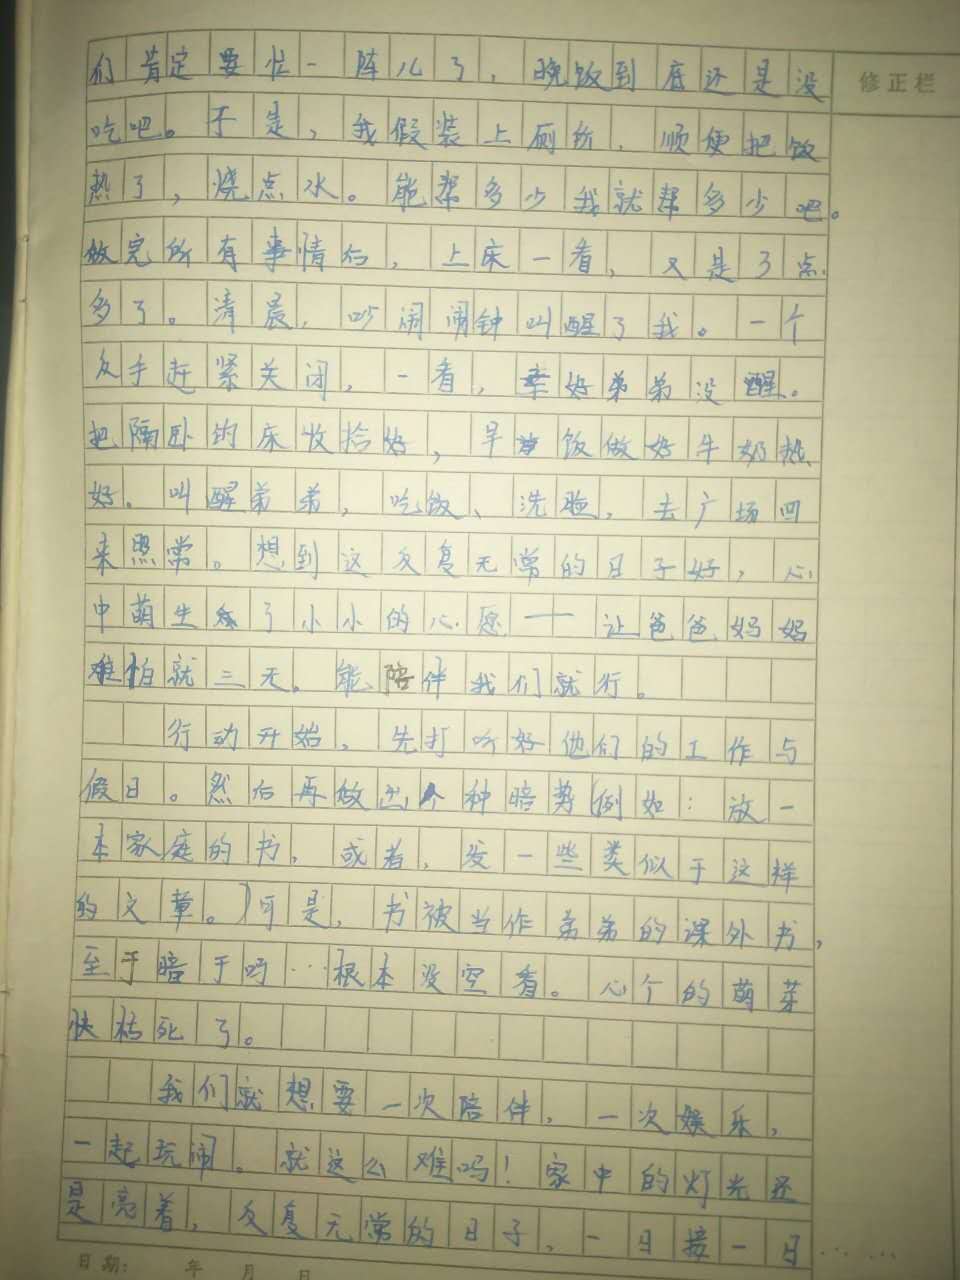 们肯定要忙一阵儿了，晚饭到底还是没
修正栏
吃吧。于是，我假装上厕所，顺便把饭
热了，烧点水。能帮多少我就帮多少吧。
做完所有事情后，上床一看，又是了点
多了。清晨，吵闹闹钟叫醒了我。一个
反手赶紧关闭，一看，幸好弟弟没醒。
把隔卧的床收拾好，早饭做好牛奶热
好。叫醒弟弟，吃饭、洗脸，去广场回
来照常。想到这反复无常的日子好，心
中萌生了小小的心愿——让爸爸妈妈
难怕就三天。能陪伴我们就行。
行动开始，先打听好他们的工作与
假日。然后再做出个种暗势(例如：放一
本家庭的书，或者，发一些类似于这样
的文章。)可是，书被当作弟弟的课外书，
至于暗于吗…根本没空看。心个的萌芽
快枯死了。
我们就想要一次陪伴，一次娱乐，
一起玩闹。就这么难吗！家中的灯光还
是亮着，反复无常的日子，一日接一日……
日期： 年 月 日